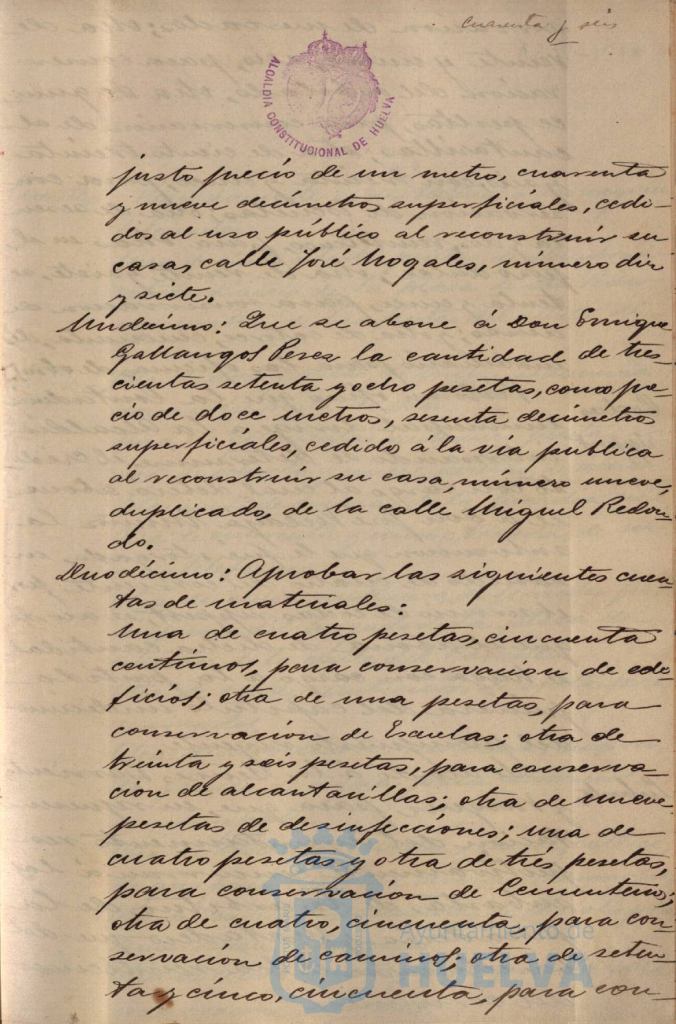 cuarenta y seis
ALCALDIA CONSTITUCIONAL DE HUELVA
justo precio de un metro, cuarenta
y nueve decímetros superficiales, cedi-
dos al uso público al reconstruir su
casa, calle José Nogales, número diez
y siete.
Undécimo: Que se abone á Don Enrique
Gallangos Perez la cantidad de tres-
cientas setenta y ocho pesetas, como pre-
cio de doce metros, sesenta decímetros
superficiales, cedido á la via publica
al reconstruir su casa, número nueve,
duplicado, de la calle Miguel Redon-
do.
Duodécimo: Aprobar las siguientes cuen-
tas de materiales:
Una de cuatro pesetas, cincuenta
centimos, para conservacion de edi-
ficios; otra de una pesetas, para
conservación de Escuelas; otra de
treinta y seis pesetas, para conserva-
cion de alcantarillas; otra de nueve
pesetas de desinfecciones; una de
cuatro pesetas y otra de trés pesetas,
para conservación de Cementerio;
otra de cuatro, cincuenta, para con-
servación de caminos; otra de seten-
ta y cinco, cincuenta, para con-
Ayuntamiento de
HUELVA